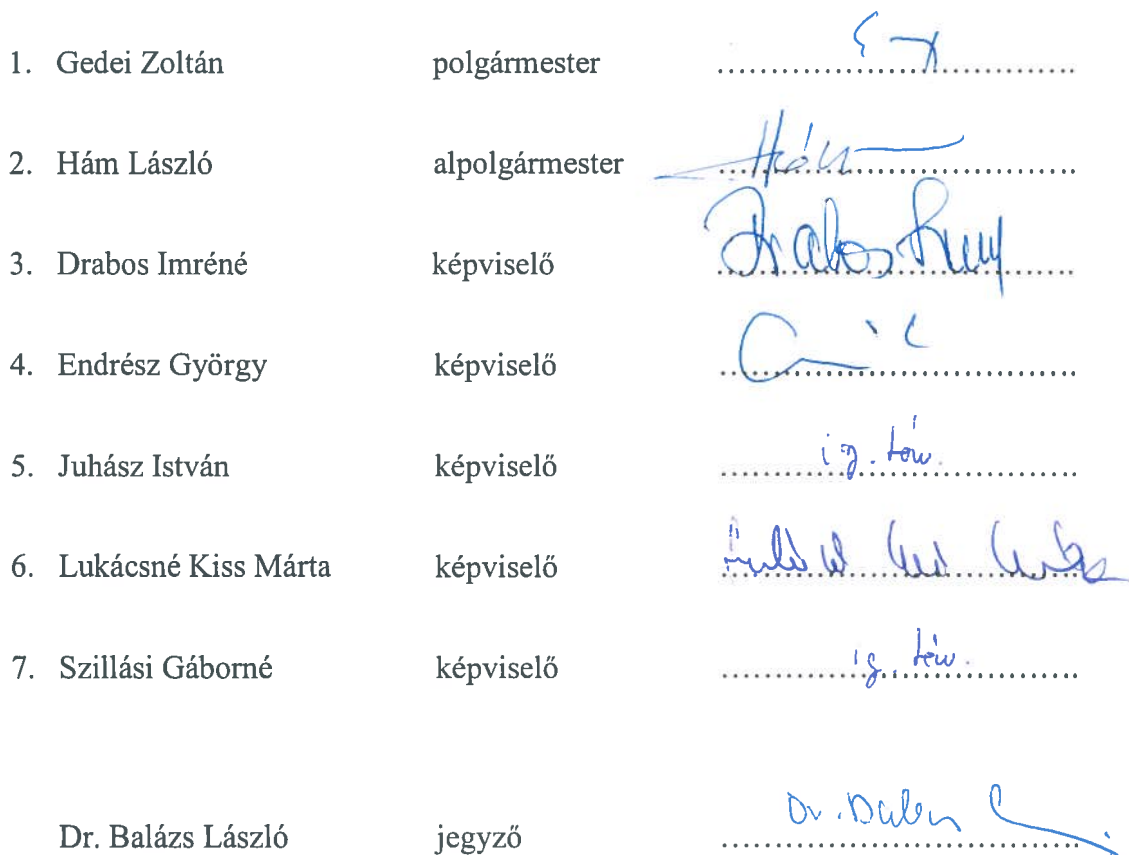 1. Gedei Zoltán polgármester
2. Hám László alpolgármester
3. Drabos Imréné képviselő Drabos
4. Endrész György képviselő
5. Juhász István képviselő ig. táv.
6. Lukácsné Kiss Márta képviselő
7. Szillási Gáborné képviselő ig. táv.
Dr. Balázs László jegyző Dr.